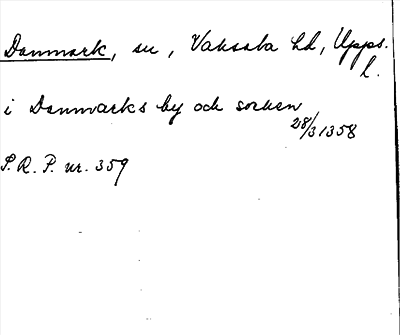 Danmark, sn, Vaksala hd, Upps.
l.
i Danmarks by och socken
28/3 1358
S.R.P. nr. 359